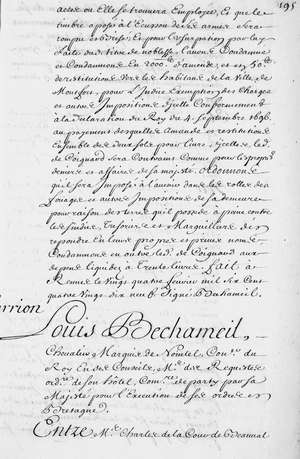 195
acte ou Elle se trouvera Employée, Et que le
timbre aposé à l'Ecusson de ses armes sera
rompu et brisé, Et pour l'usurpation par luy
faite du titre de noblesse, l'avons Condamné
et Condamnons en 2000 d'amende, et en 50
de restitution vers les habitans de la Ville de
Montfort, pour l'Indue Exemption des Charges
et autres Impositions d'icelle Conformement
à la declaration du Roy du 4. septembre 1696
au payement desquelles amende et restitution
Ensemble des deux sols pour livre, d'icelles, led.
de Coignard sera Contraint Comme pour les propres
deniers et affaires de sa majesté. Ordonnons
qu'il sera Imposé à l'avenir dans les rolles des
fouages et autres Impositions de sa demeure
pour raison des terres qu'il possede à peine contre
les sindic, Tresorier et Marguilliers de
repondre En leurs propres et privés noms
Condamnons en outre led. de Coignard aux
depens liquidez à trente livres. fait à
Rennes le Vingt quatre Janvier mil six Cent
quatre Vingt dix neuf. Signé Bechameil.
Louis Bechameil,
Chevalier Marquis de Nointel, Con.er du
Roy En ses Conseils, M.e des Requestes
ord.re de son hôtel, Com.re departy par sa
Majesté pour l'Execution de ses ordres en
Bretagne.
Entre M.e Charles de la Cour de Beauval